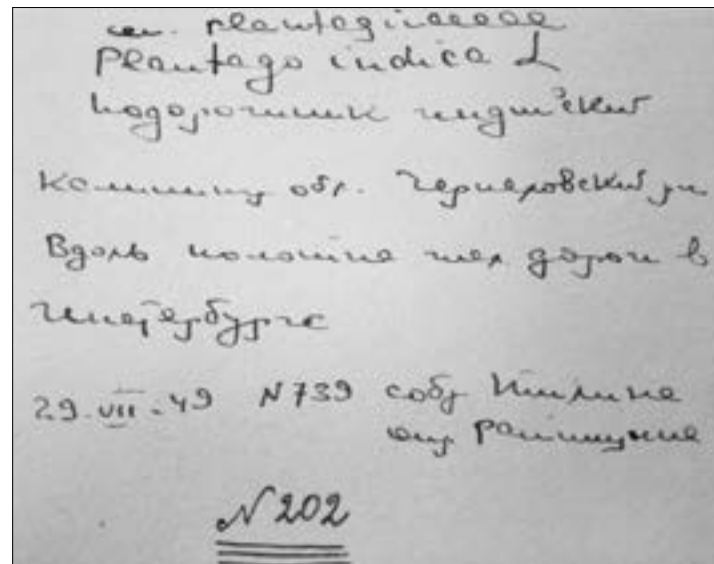 сем. Plantaginaceae
Plantago indica L
Подорожник индийский
Калинингр обл. Черняховский рн
Вдоль полотна жел дороги в
29-VII-49 N739 собр
опр
N 202